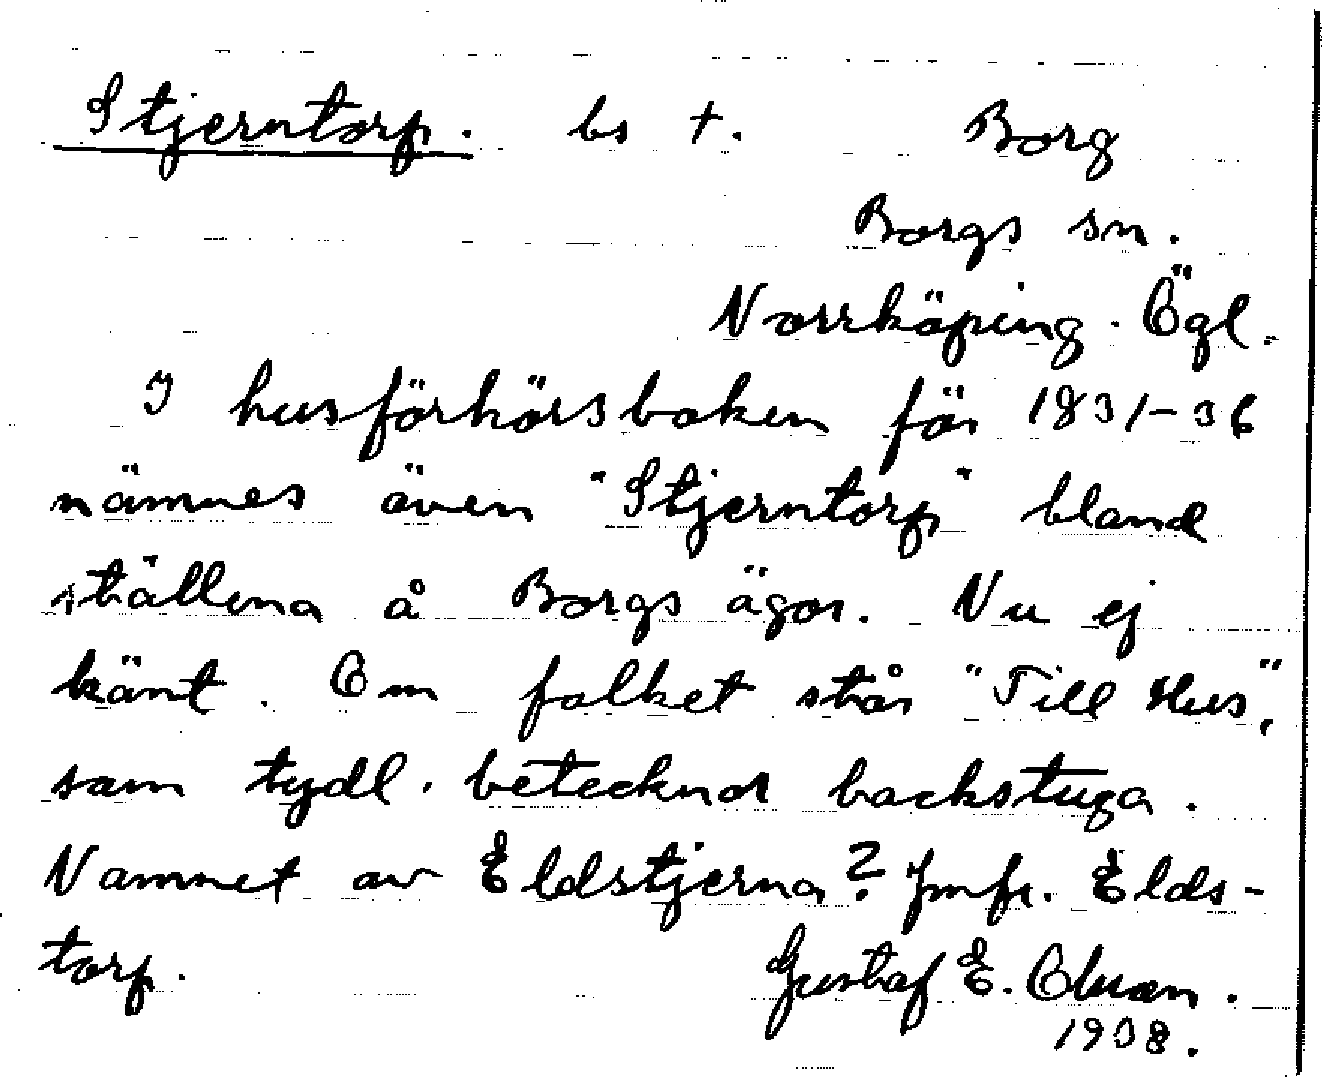 Stjerntorp. bs †. Borg
Borgs sn.
Norrköping. Ögl.
I husförhörsboken för 1831-36
nämnes även "Stjerntorp" bland
ställena å Borgs ägor. Nu ej
känt. Om folket står "Till Hus",
som tydl. betecknar backstuga.
Namnet av Eldstjerna? Jmfr. Elds-
torp.
Gustaf E.